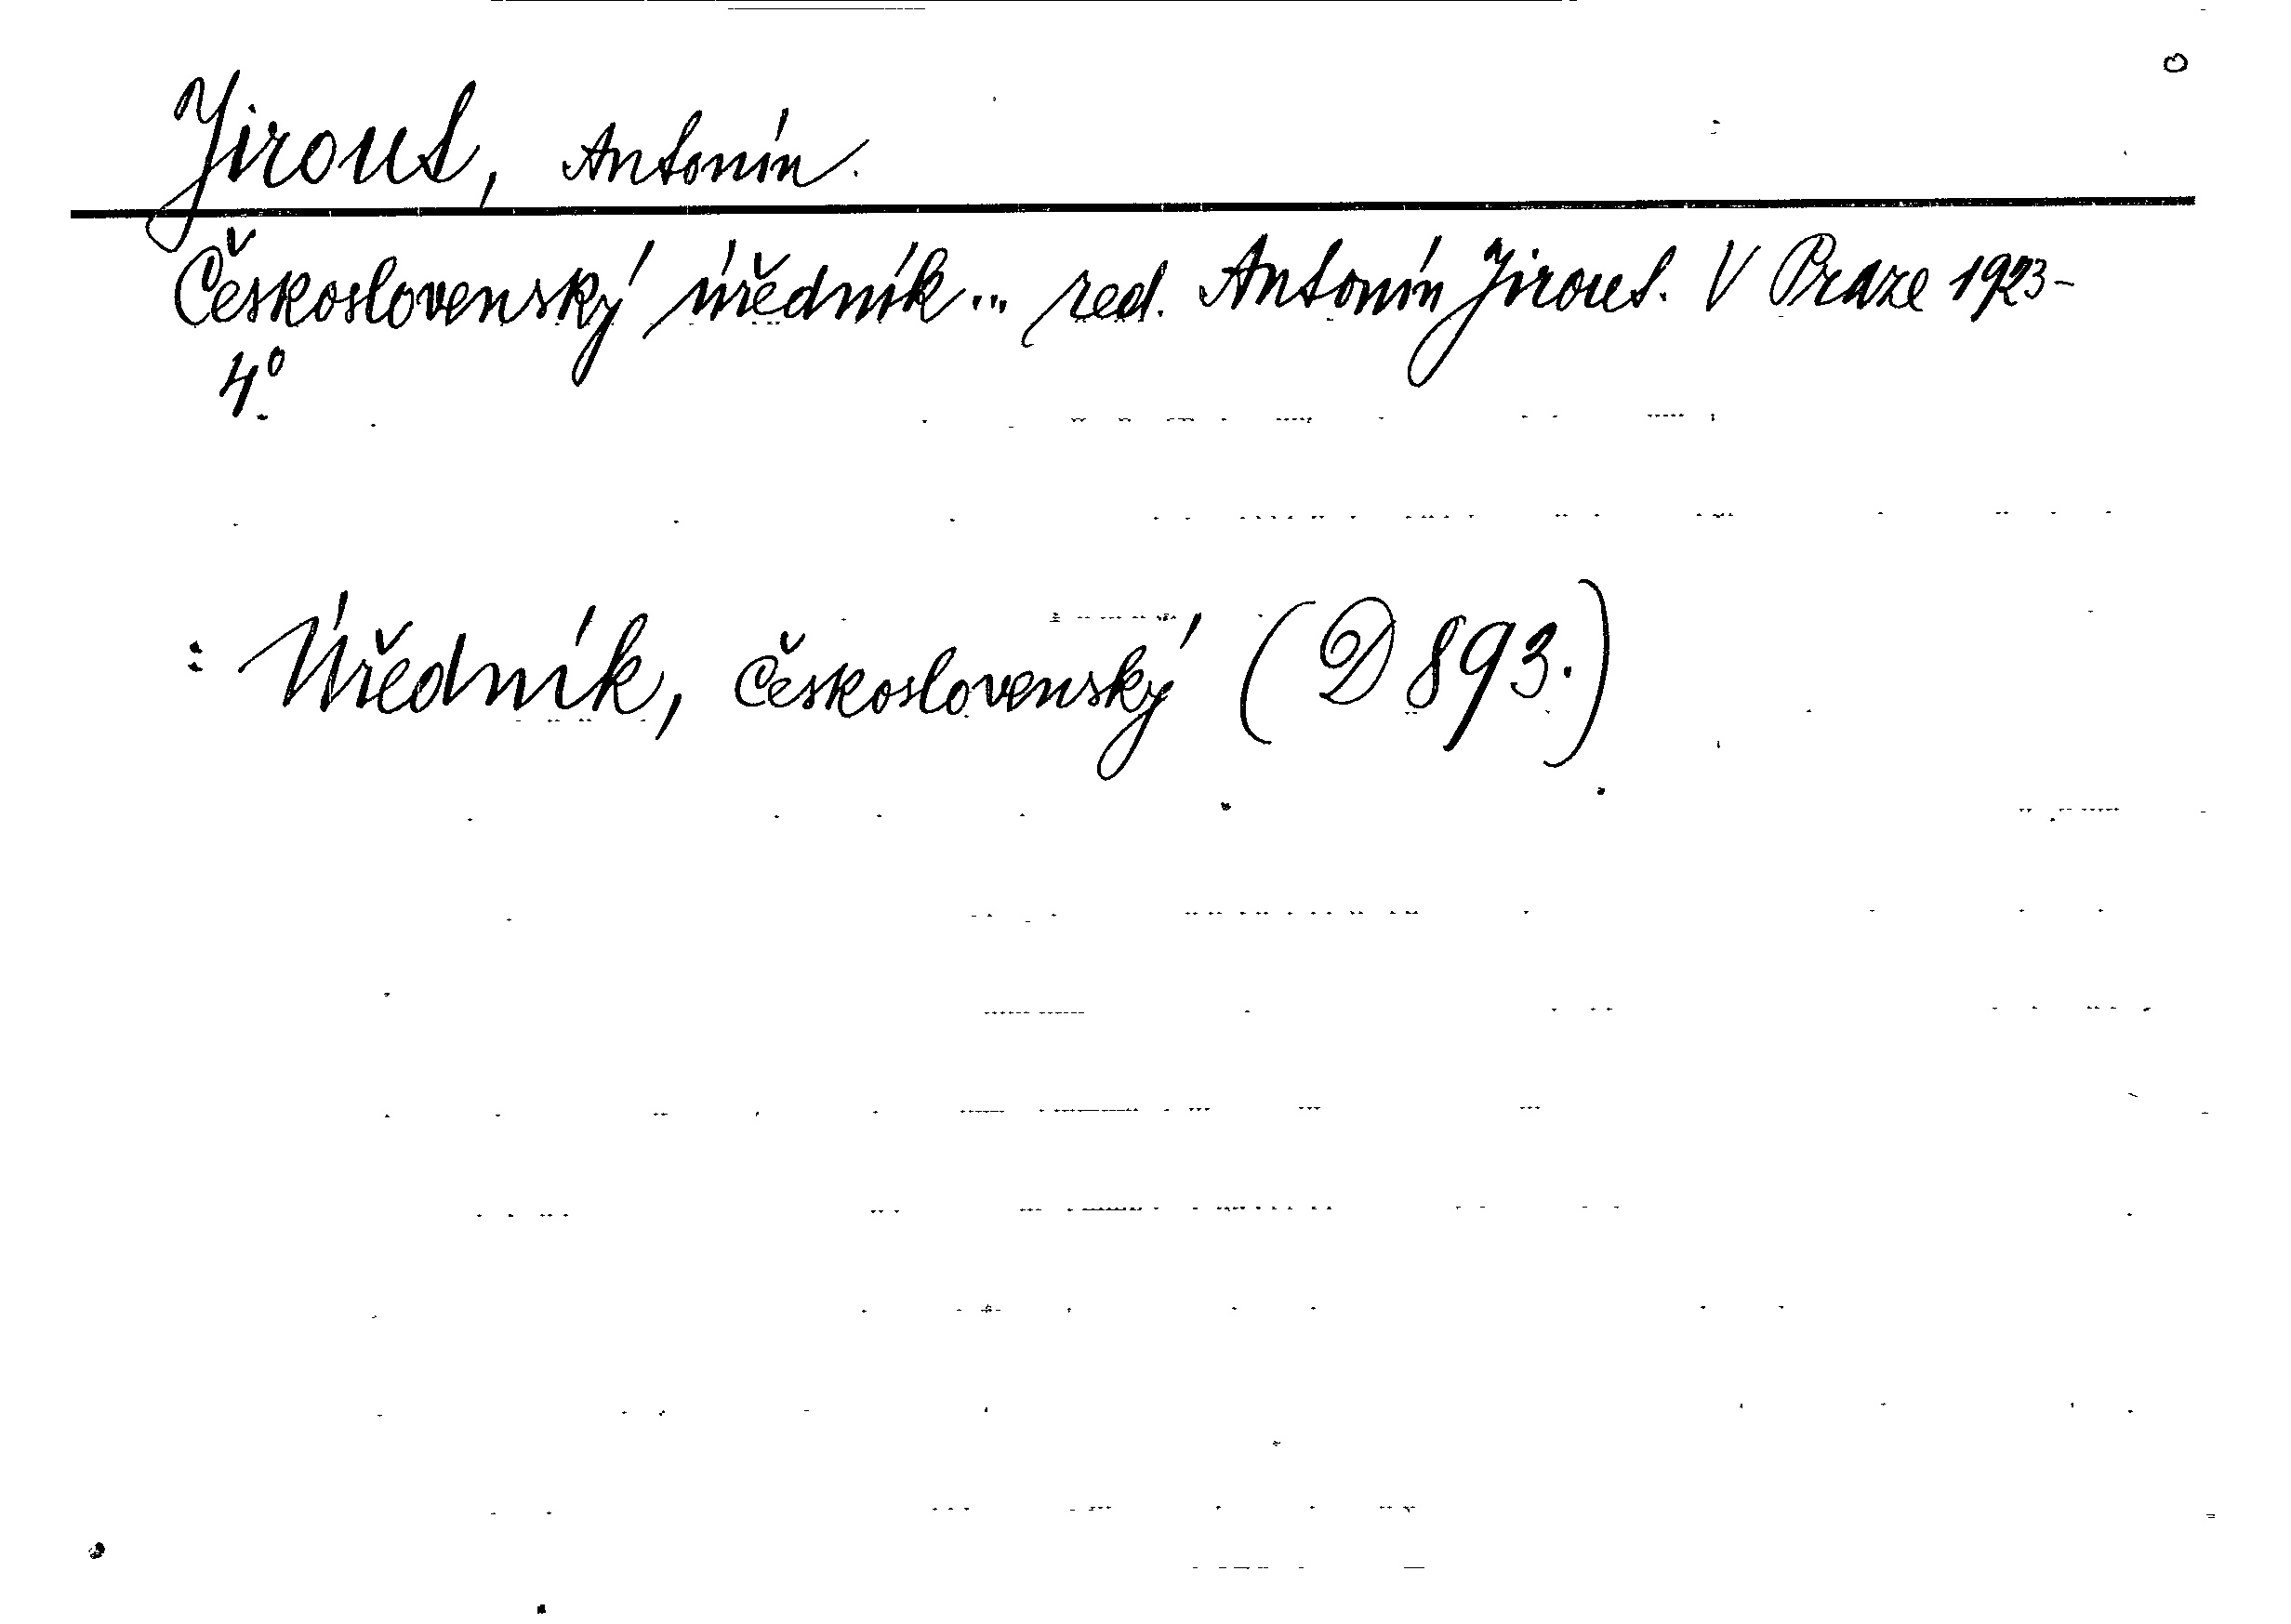 Jirout, Antonín.
Československý úředník... red. Antonín Jirout. V Praze 1923-
4°
: Úředník, československý (D 893.)